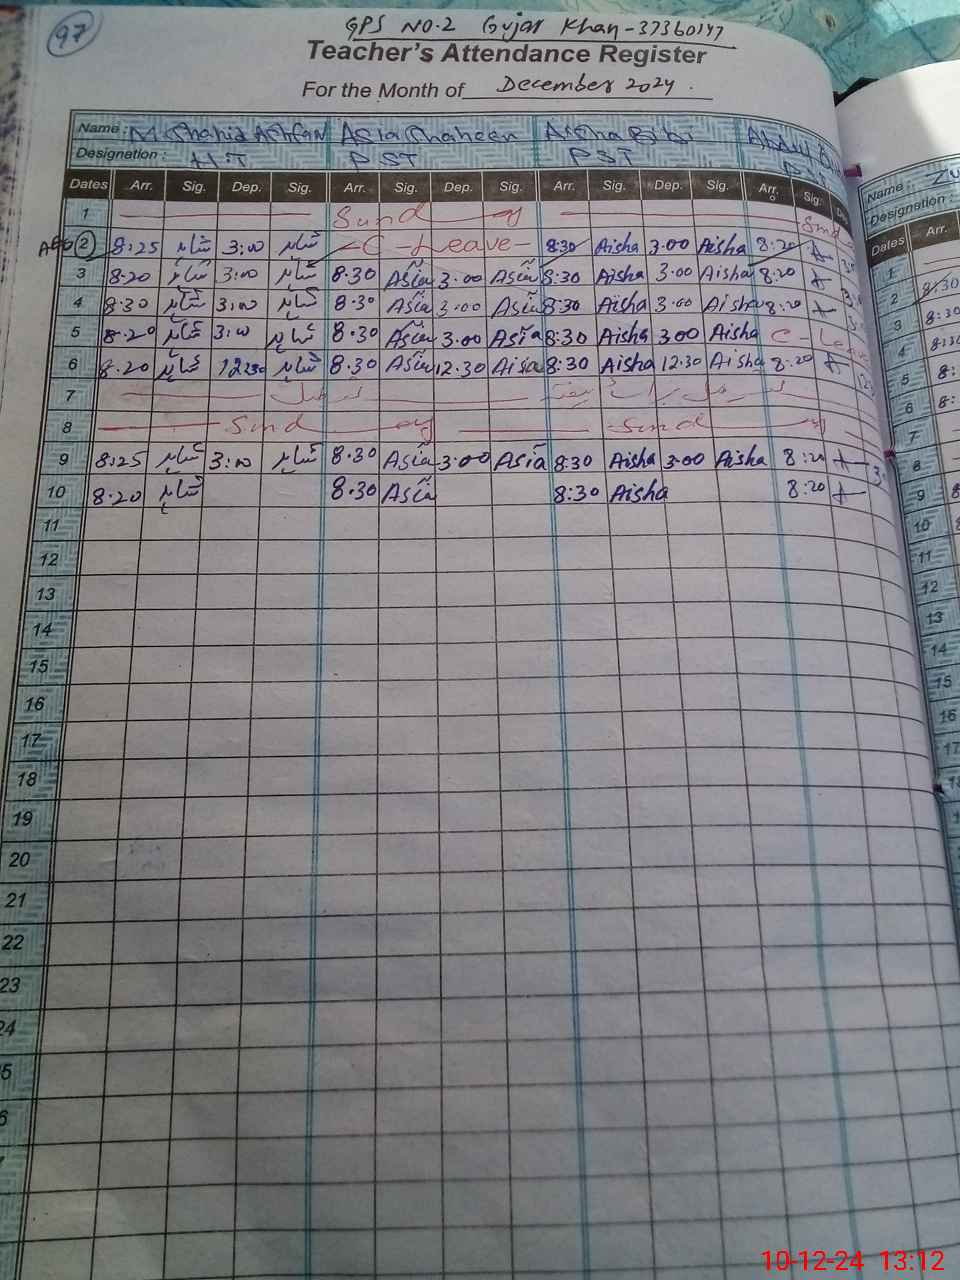 97
GPS NO.2 Gujar Khan-37360147
Teacher's Attendance Register
For the Month of December 2024.
Name: M. Shahid Ashfaq Asia Shaheen Aisha Bibi Abdul
Designation: H.T PST PST PST
Dates Arr. Sig. Dep. Sig. Arr. Sig. Dep. Sig. Arr. Sig. Dep. Sig. Arr. Sig.
1 Sund ay Sund
2 8:25 3:00 C-Leave- 8:30 Aisha 3.00 Aisha 8:20
3 8.20 3:00 8.30 Asia 3.00 Asia 8:30 Aisha 3.00 Aisha 8.20
4 8:30 3:00 8.30 Asia 3.00 Asia 8:30 Aisha 3.00 Aisha 8.20
5 8.20 3:00 8.30 Asia 3.00 Asia 8:30 Aisha 3.00 Aisha C - Leave
6 8.20 12:30 8.30 Asia 12.30 Aisa 8:30 Aisha 12.30 Aisha 8.20
7
8 Sund ay Sund ay
9 8:25 3:00 8.30 Asia 3.00 Asia 8:30 Aisha 3.00 Aisha 8:20
10 8.20 8.30 Asia 8:30 Aisha 8:20
11
12
13
14
15
16
17
18
19
20
21
22
23
24
5
6
Name:
Designation:
Dates Arr.
1
2 8:30
3 8:30
4 8:30
5 8:
6 8:
7
8
9 8
10
11
12
13
14
15
16
17
10-12-24 13:12